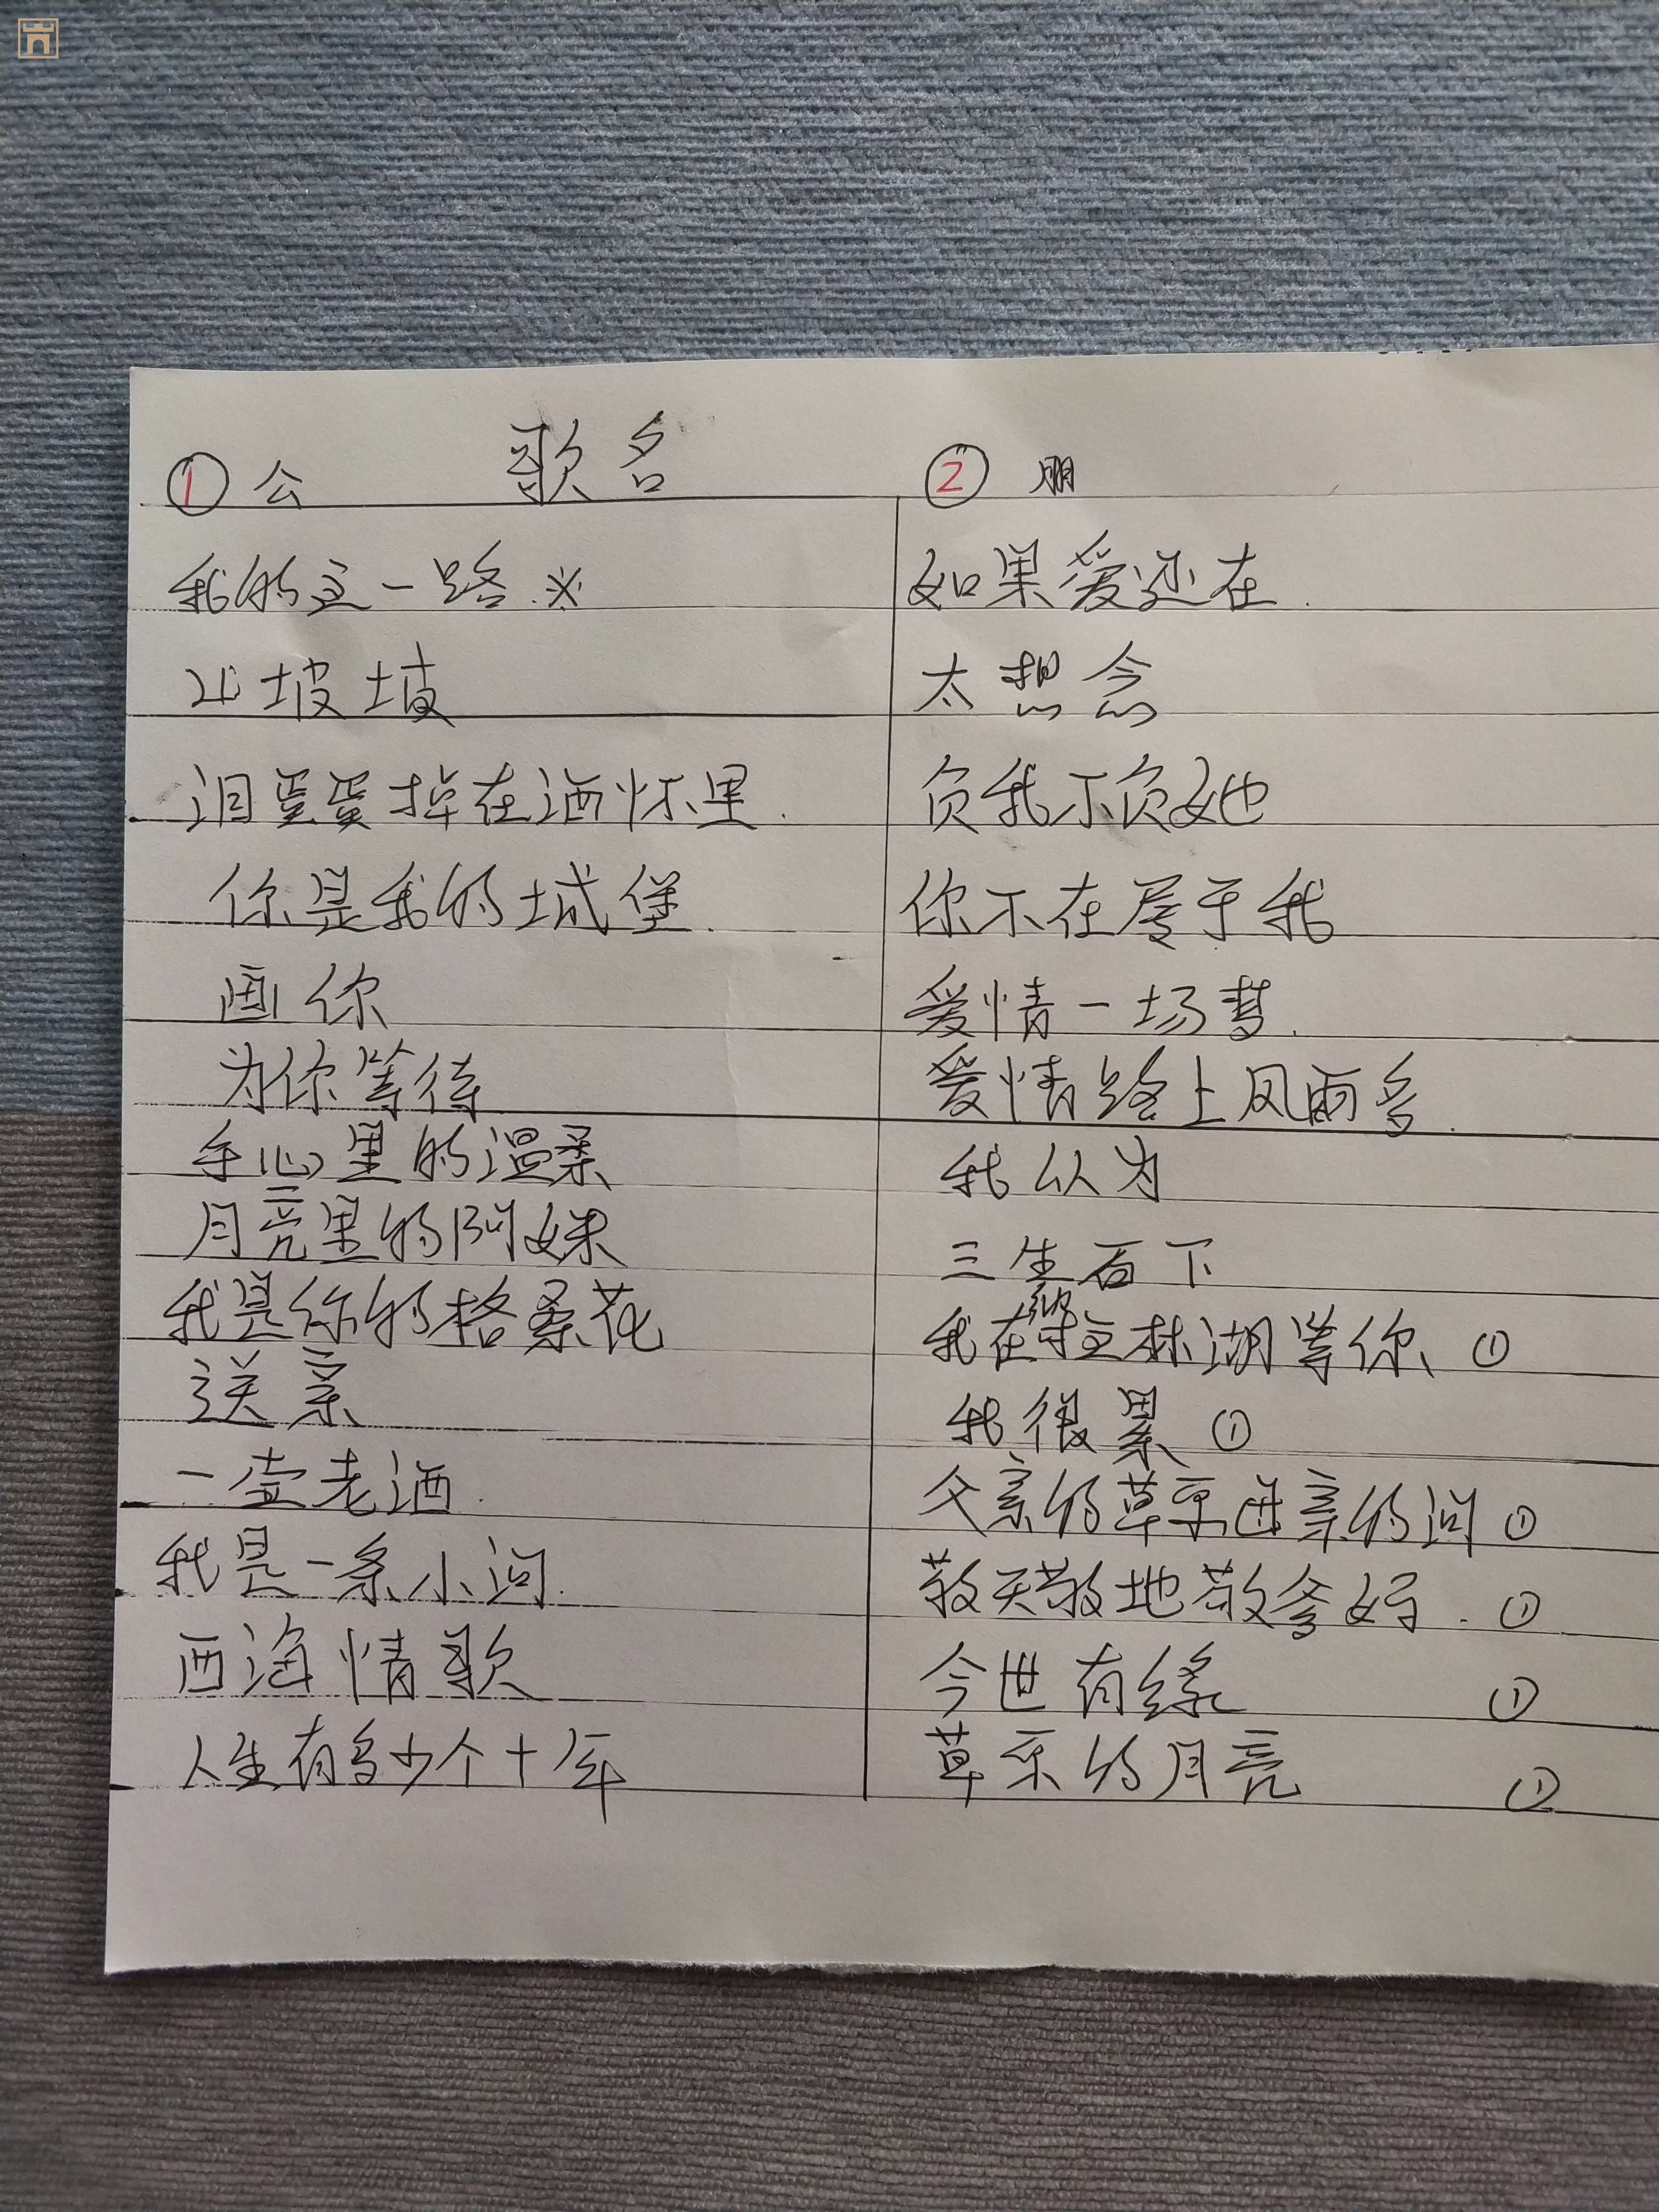 歌名
① 公
我的这一路 ※
山坡坡
泪蛋蛋掉在酒怀里.
你是我的城堡.
画你
为你等待
手心里的温柔
月亮里的阿妹
我是你的格桑花
送亲
一壶老酒.
我是一条小河.
西海情歌
人生有多少个十年
② 朋
如果爱还在.
太想念
负我不负她
你不在属于我
爱情一场梦.
爱情路上风雨多.
我以为
三生石下
我在拉林湖等你、①
我很累 ①
父亲的草原母亲的河 ①
敬天敬地敬爹娘. ①
今世有缘 ①
草原的月亮 ①